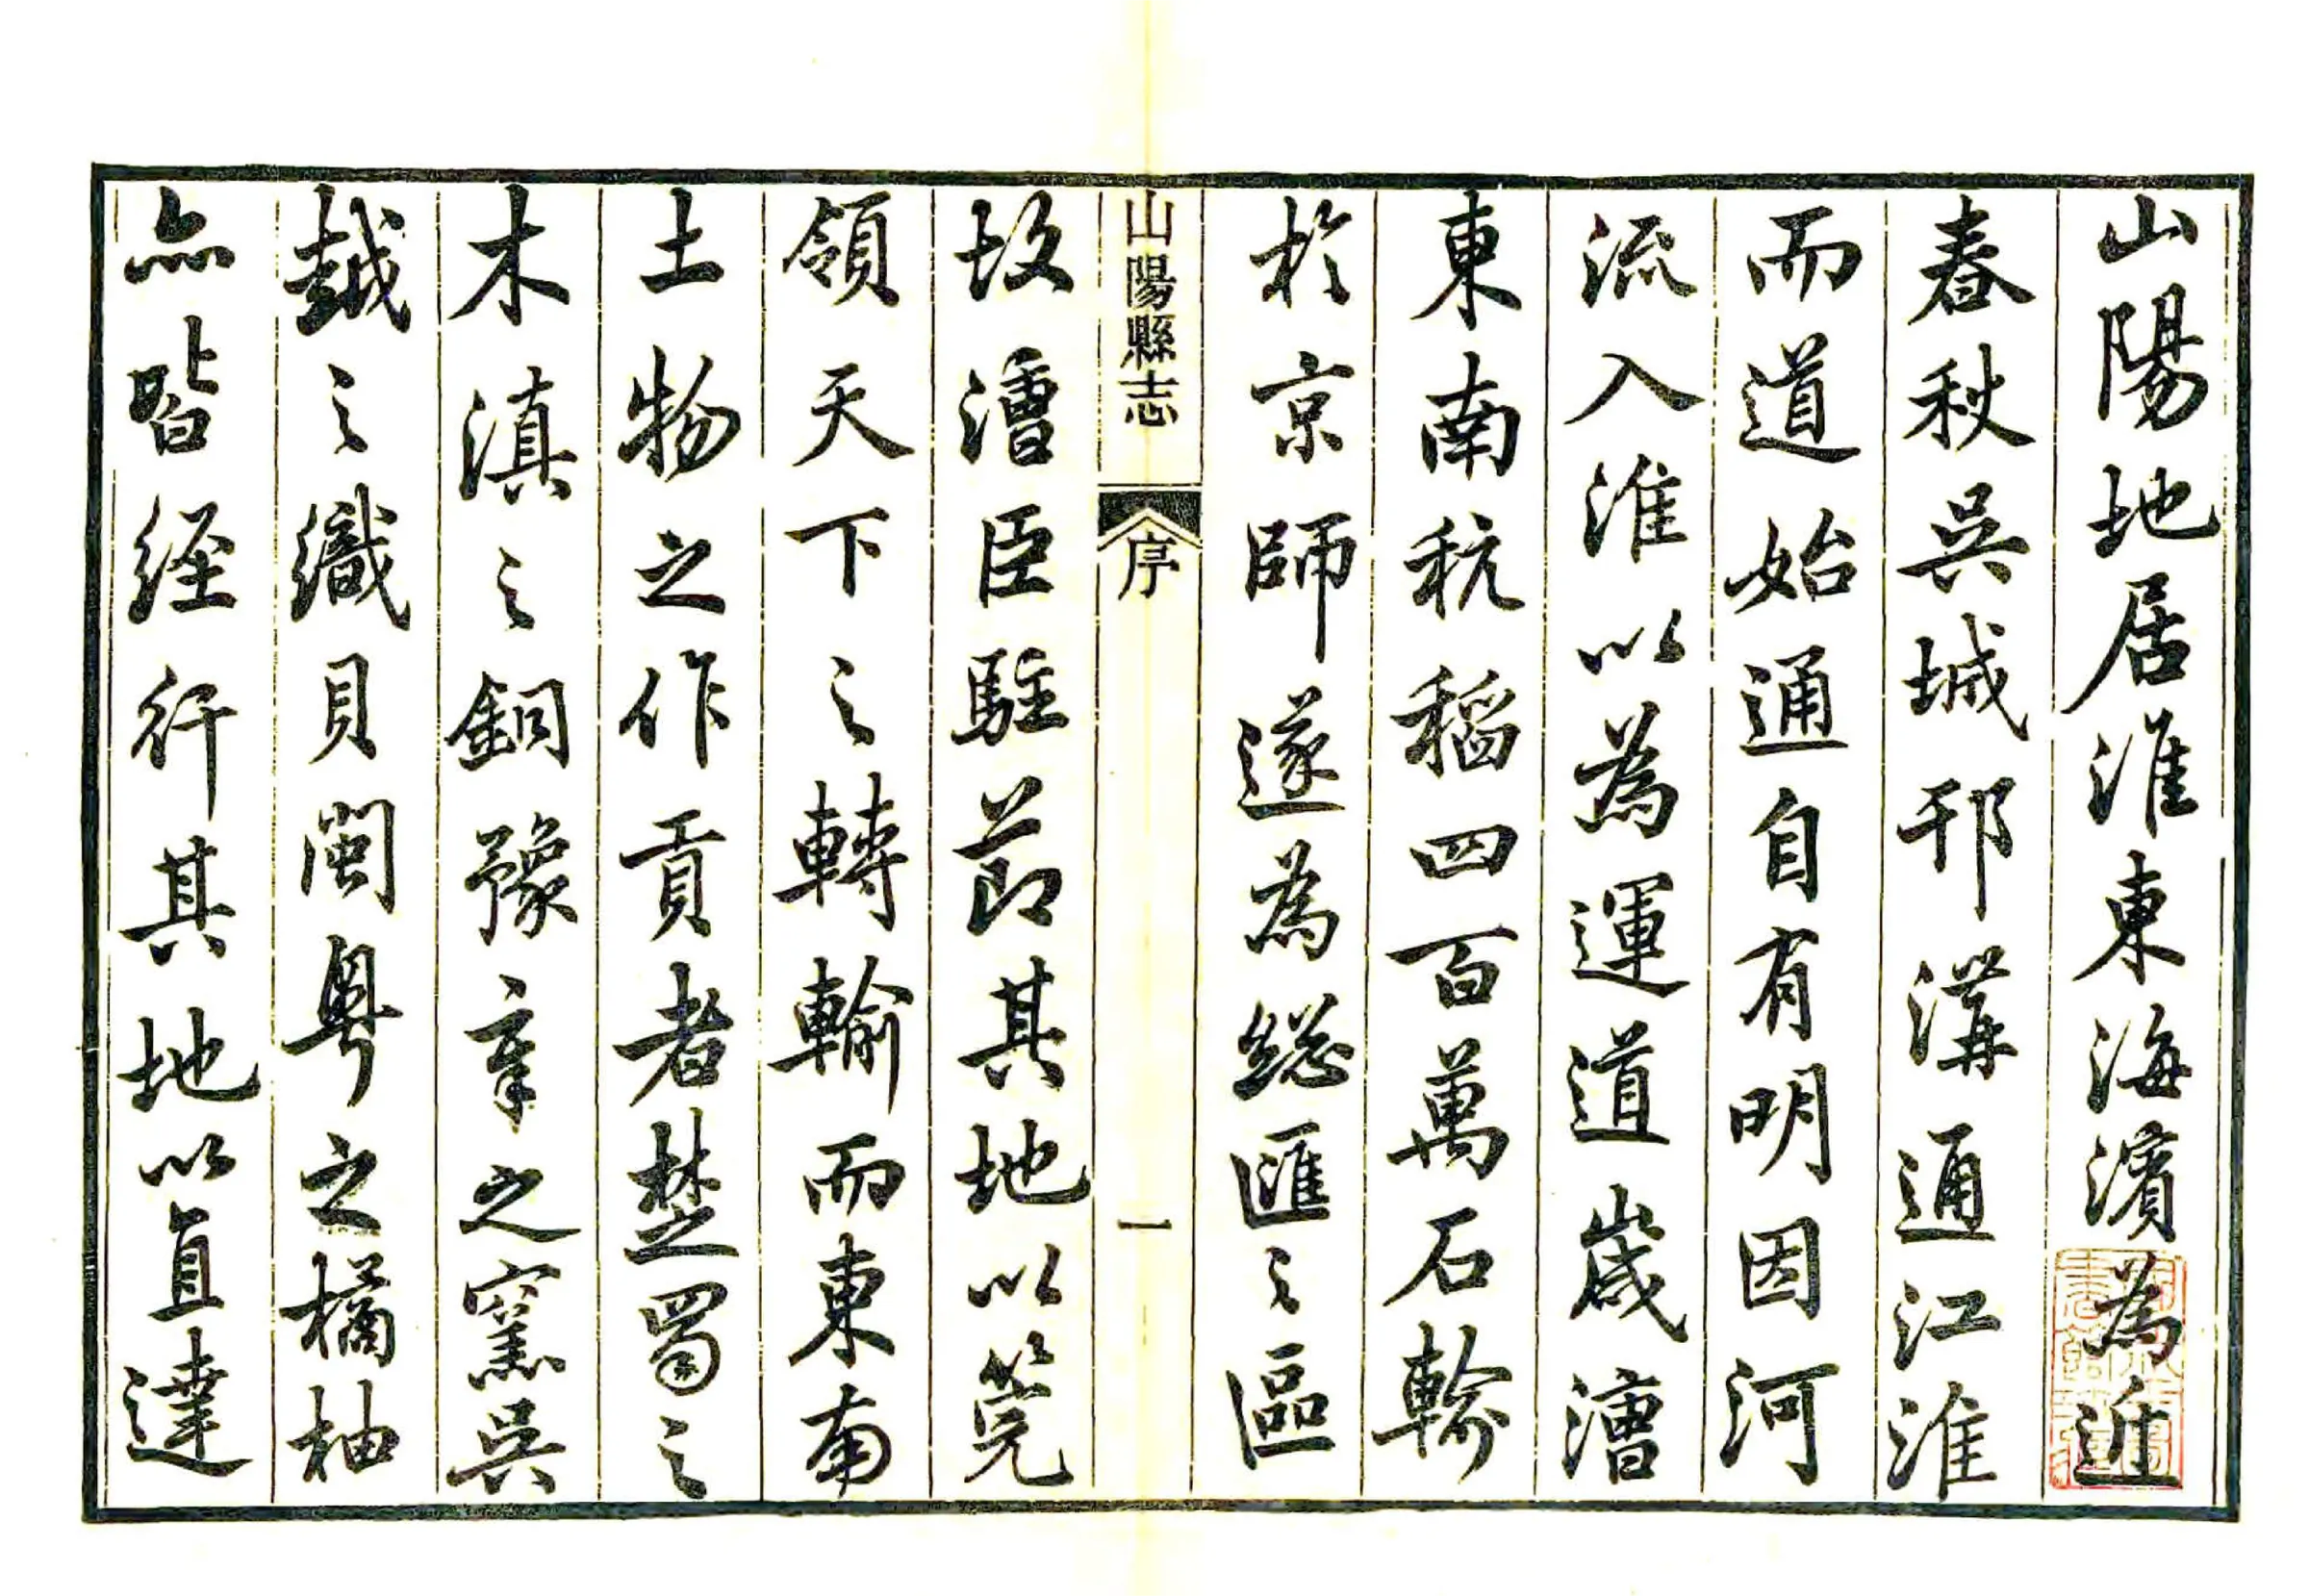 山陽地居淮東海濱為近
春秋吳城邗溝通江淮
而道始通自有明因河
流入淮以為運道歲漕
東南秔稻四百萬石輸
於京師遂為總匯之區
山陽縣志
序
一
故漕臣駐節其地以筦
領天下之轉輸而東南
土物之作貢者楚蜀之
木滇之銅豫章之窯吳
越之織貝閩粵之橘柚
亦皆經行其地以直達